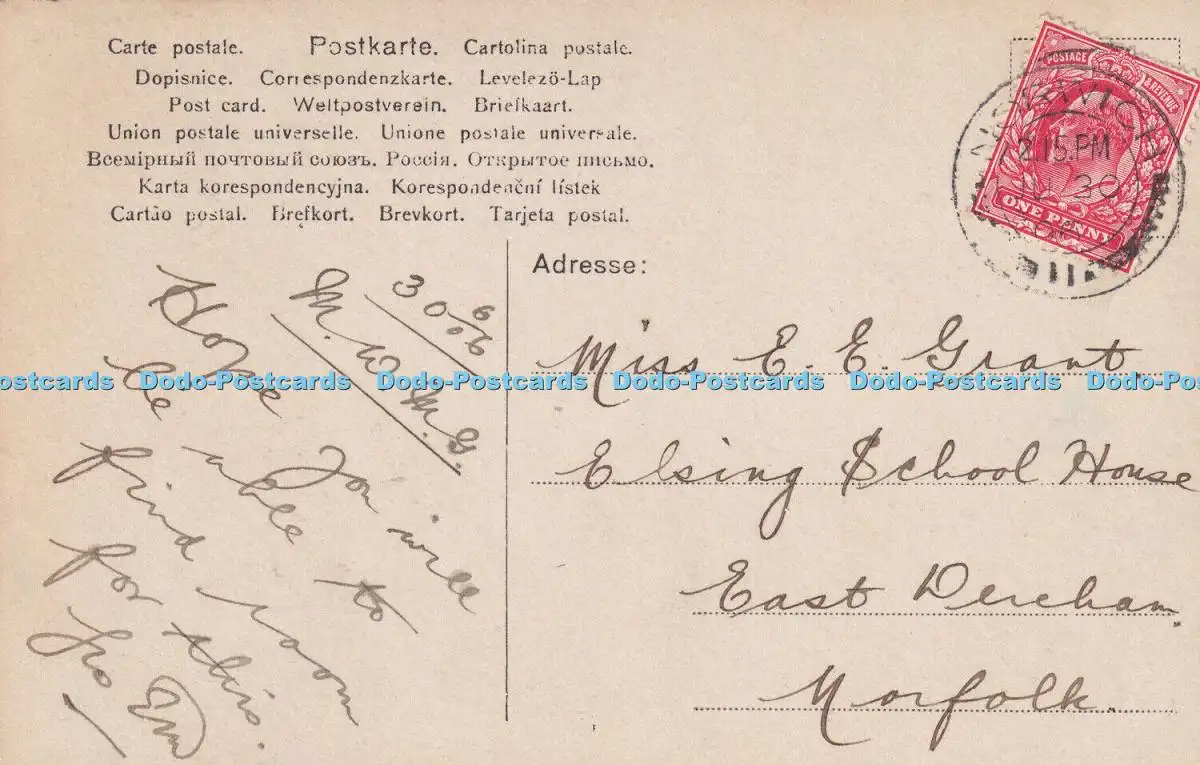 Carte postale. Postkarte. Cartolina postale.
Dopisnice. Correspondenzkarte. Levelező-Lap
Post card. Weltpostverein. Briefkaart.
Union postale universelle. Unione postale universale.
Всемірный почтовый союзъ. Россія. Открытое письмо.
Karta korespondencyjna. Korespondenční lístek
Cartão postal. Brefkort. Brevkort. Tarjeta postal.
POSTAGE & REVENUE
ONE PENNY
NORWICH
2.15.PM
30
Adresse:
Miss E. E. Grant,
Elsing School House
East Dereham,
Norfolk.
30 6 06
M. W. M. G.
Hope you will
be able to
find room
for this.
Dodo-Postcards Dodo-Postcards Dodo-Postcards Dodo-Postcards Dodo-Postcards